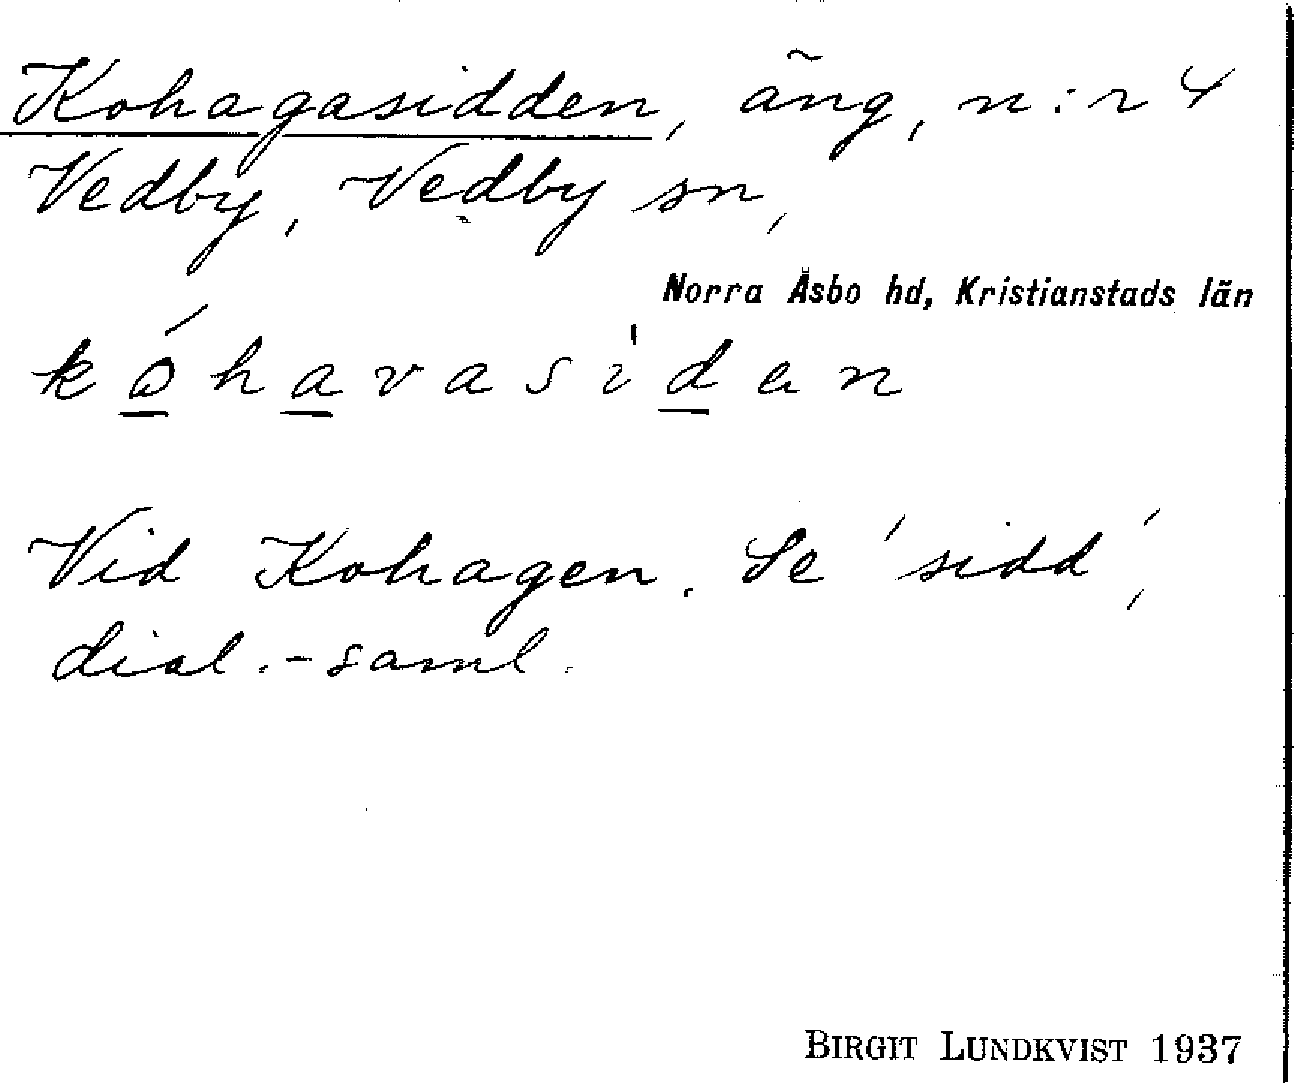 Kohagasidden, äng, n:r 4
Vedby, Vedby sn,
Norra Åsbo hd, Kristianstads län
kóhavasidan
Vid Kohagen. Se 'sidd',
dial.-saml.
BIRGIT LUNDKVIST 1937